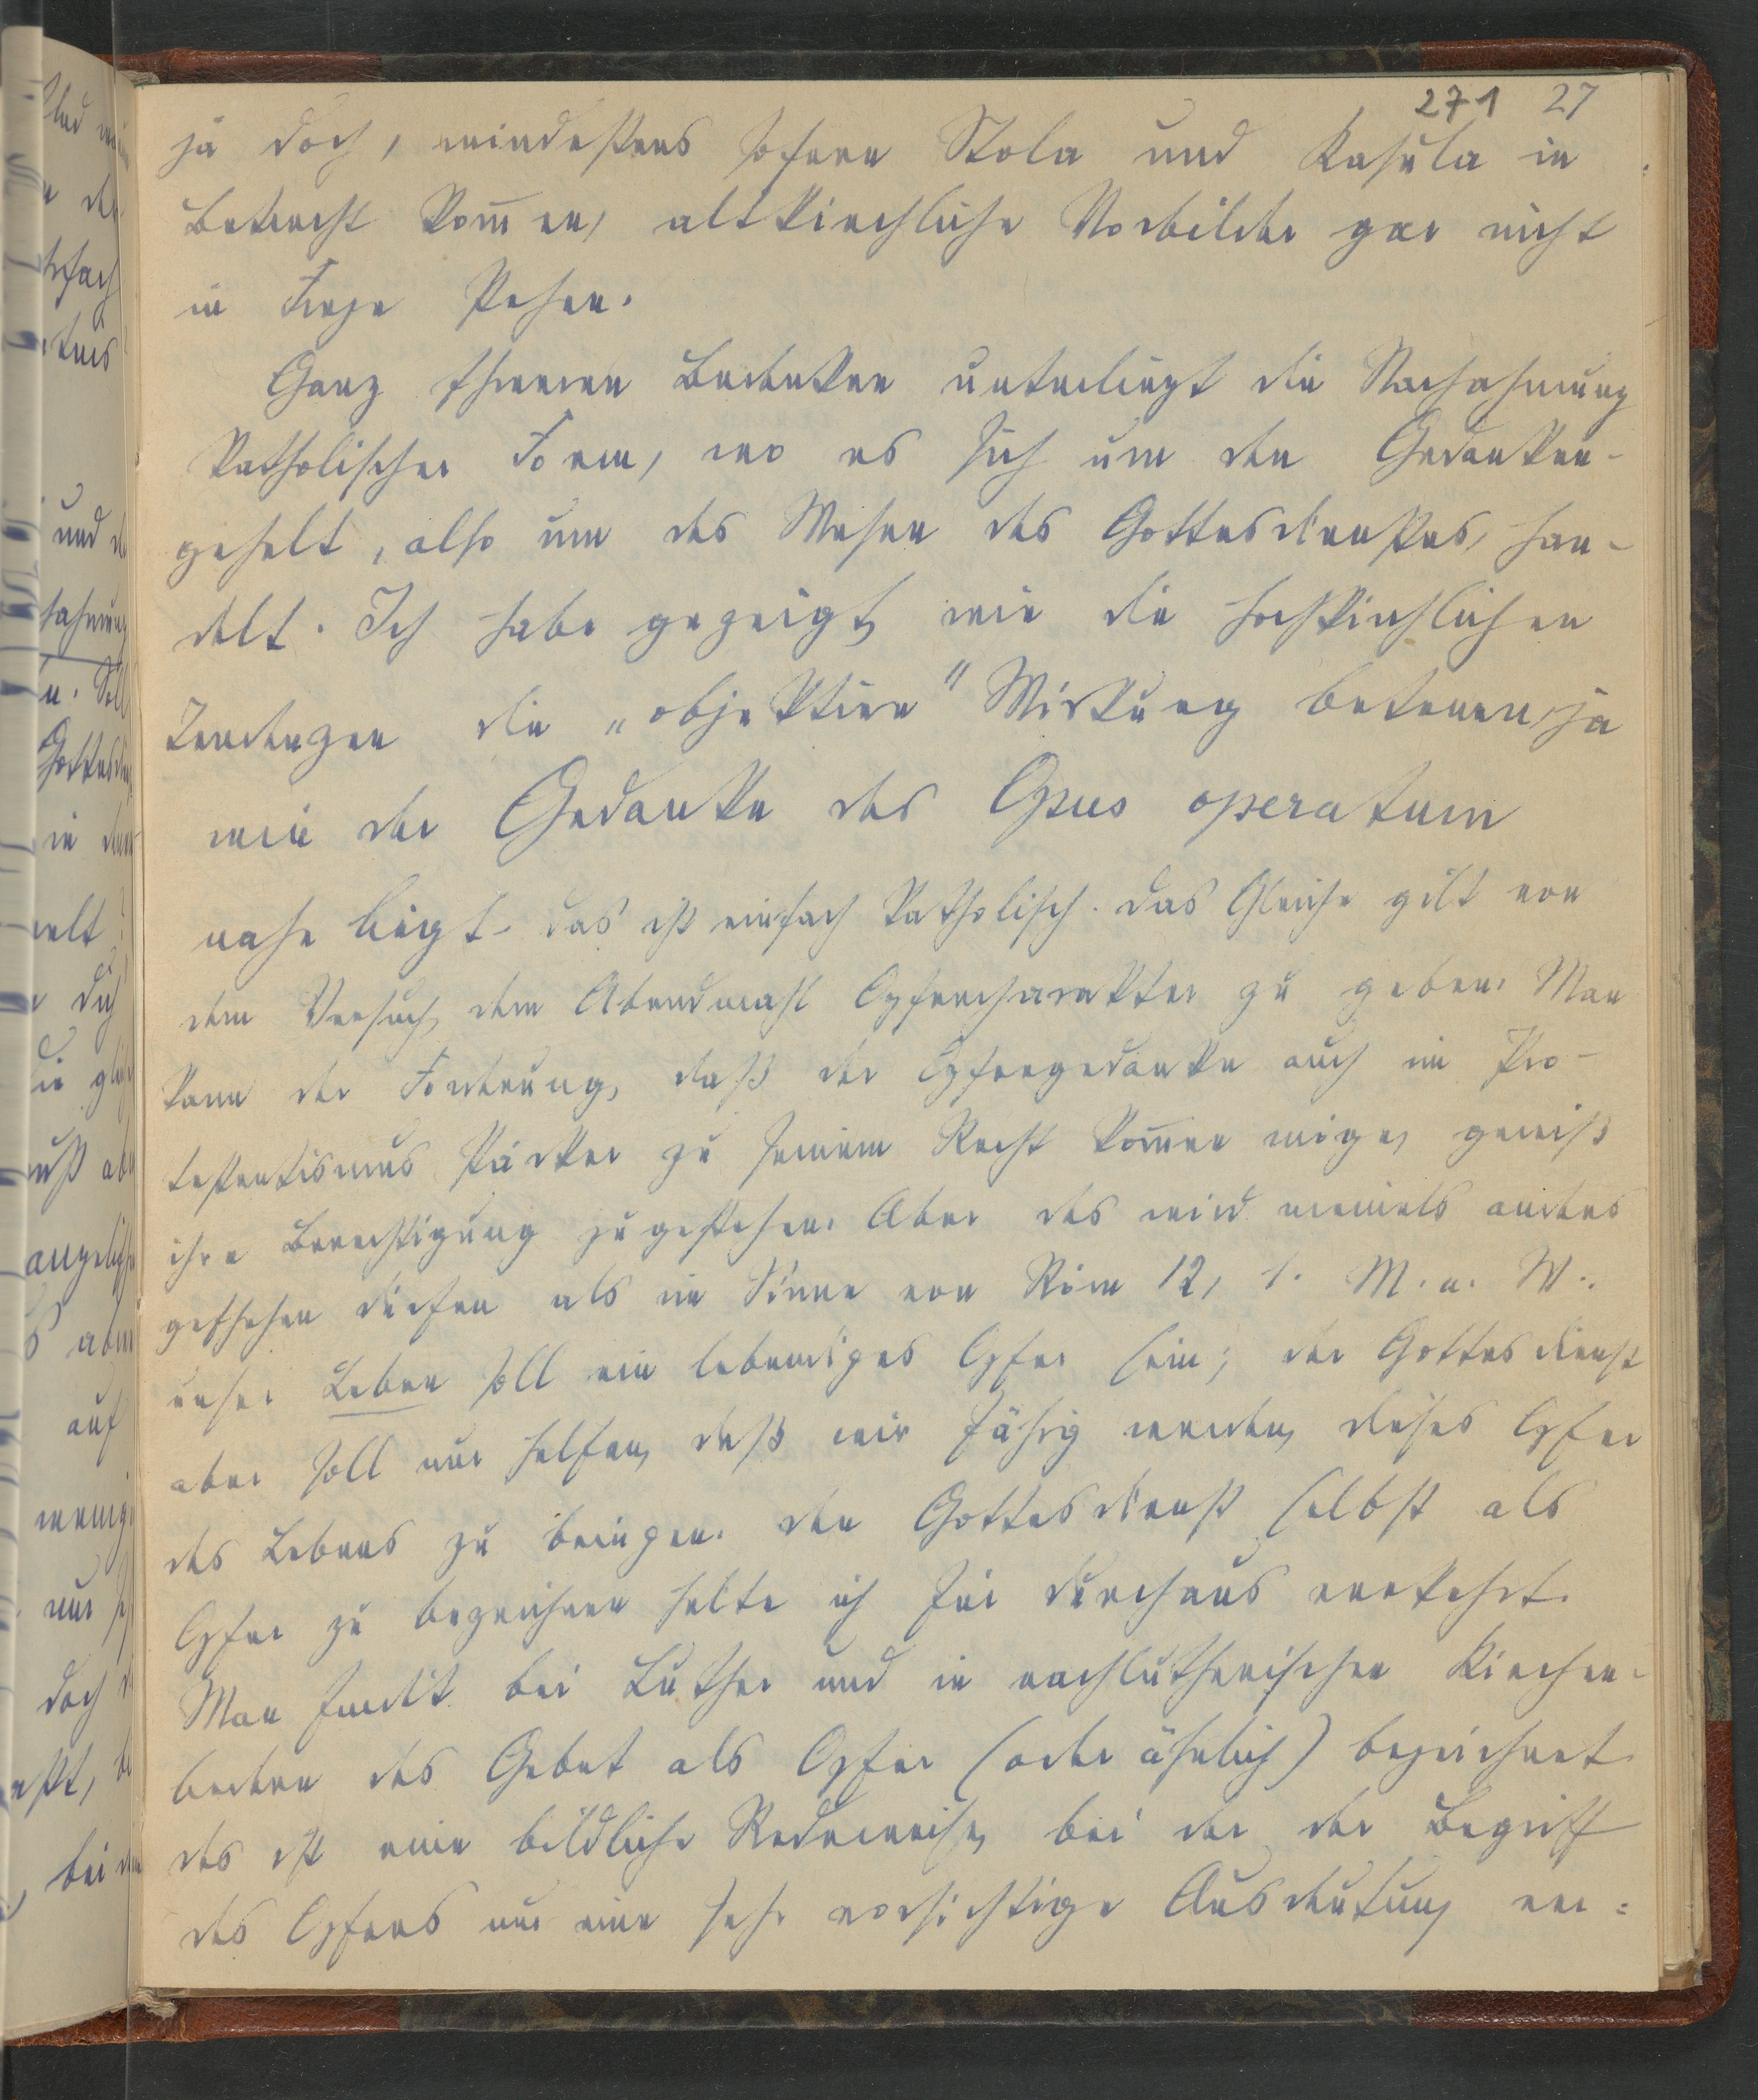 271 27
ja doch, mindestens sofern Stola und Kasula in
Betracht kom̄en, altkirchliche Vorbilder gar nicht
in Frage stehen.
Ganz schweren Bedenken unterliegt die Nachahmung
katholischer Form, wo es sich um den Gedanken-
gehalt, also um das Wesen des Gottesdienstes, han-
delt. Ich habe gezeigt, wie die hochkirchlichen
die „objektive" Wirkung betonen, ja
wie der Gedanke des Opus operatum
nahe liegt. das ist einfach katholisch. Das Gleiche gilt von
dem Versuch, dem Abendmahl Opfercharakter zu geben. Man
kann der Forderung, daß der Opfergedanke auch im Pro-
testantismus stärker zu seinem Recht kom̄en möge, gewiß
ihre Berechtigung zugestehen. Aber das wird niemals anders
geschehen dürfen als im Sinne von Röm 12, 1. M. a. W.:
unser Leben soll ein lebendiges Opfer sein; der Gottesdienst
aber soll nur helfen, daß wir fähig werden, dieses Opfer
des Lebens zu bringen. den Gottesdienst selbst als
Opfer zu bezeichnen halte ich für durchaus verkehrt.
Man findet bei Luther und in nachlutherischen Kirchen-
das Gebet als Opfer (oder ähnlich) bezeichnet.
das ist eine bildliche Redeweise, bei der der Begriff
des Opfers nur eine sehr vorsichtige Ausdeutung ver-